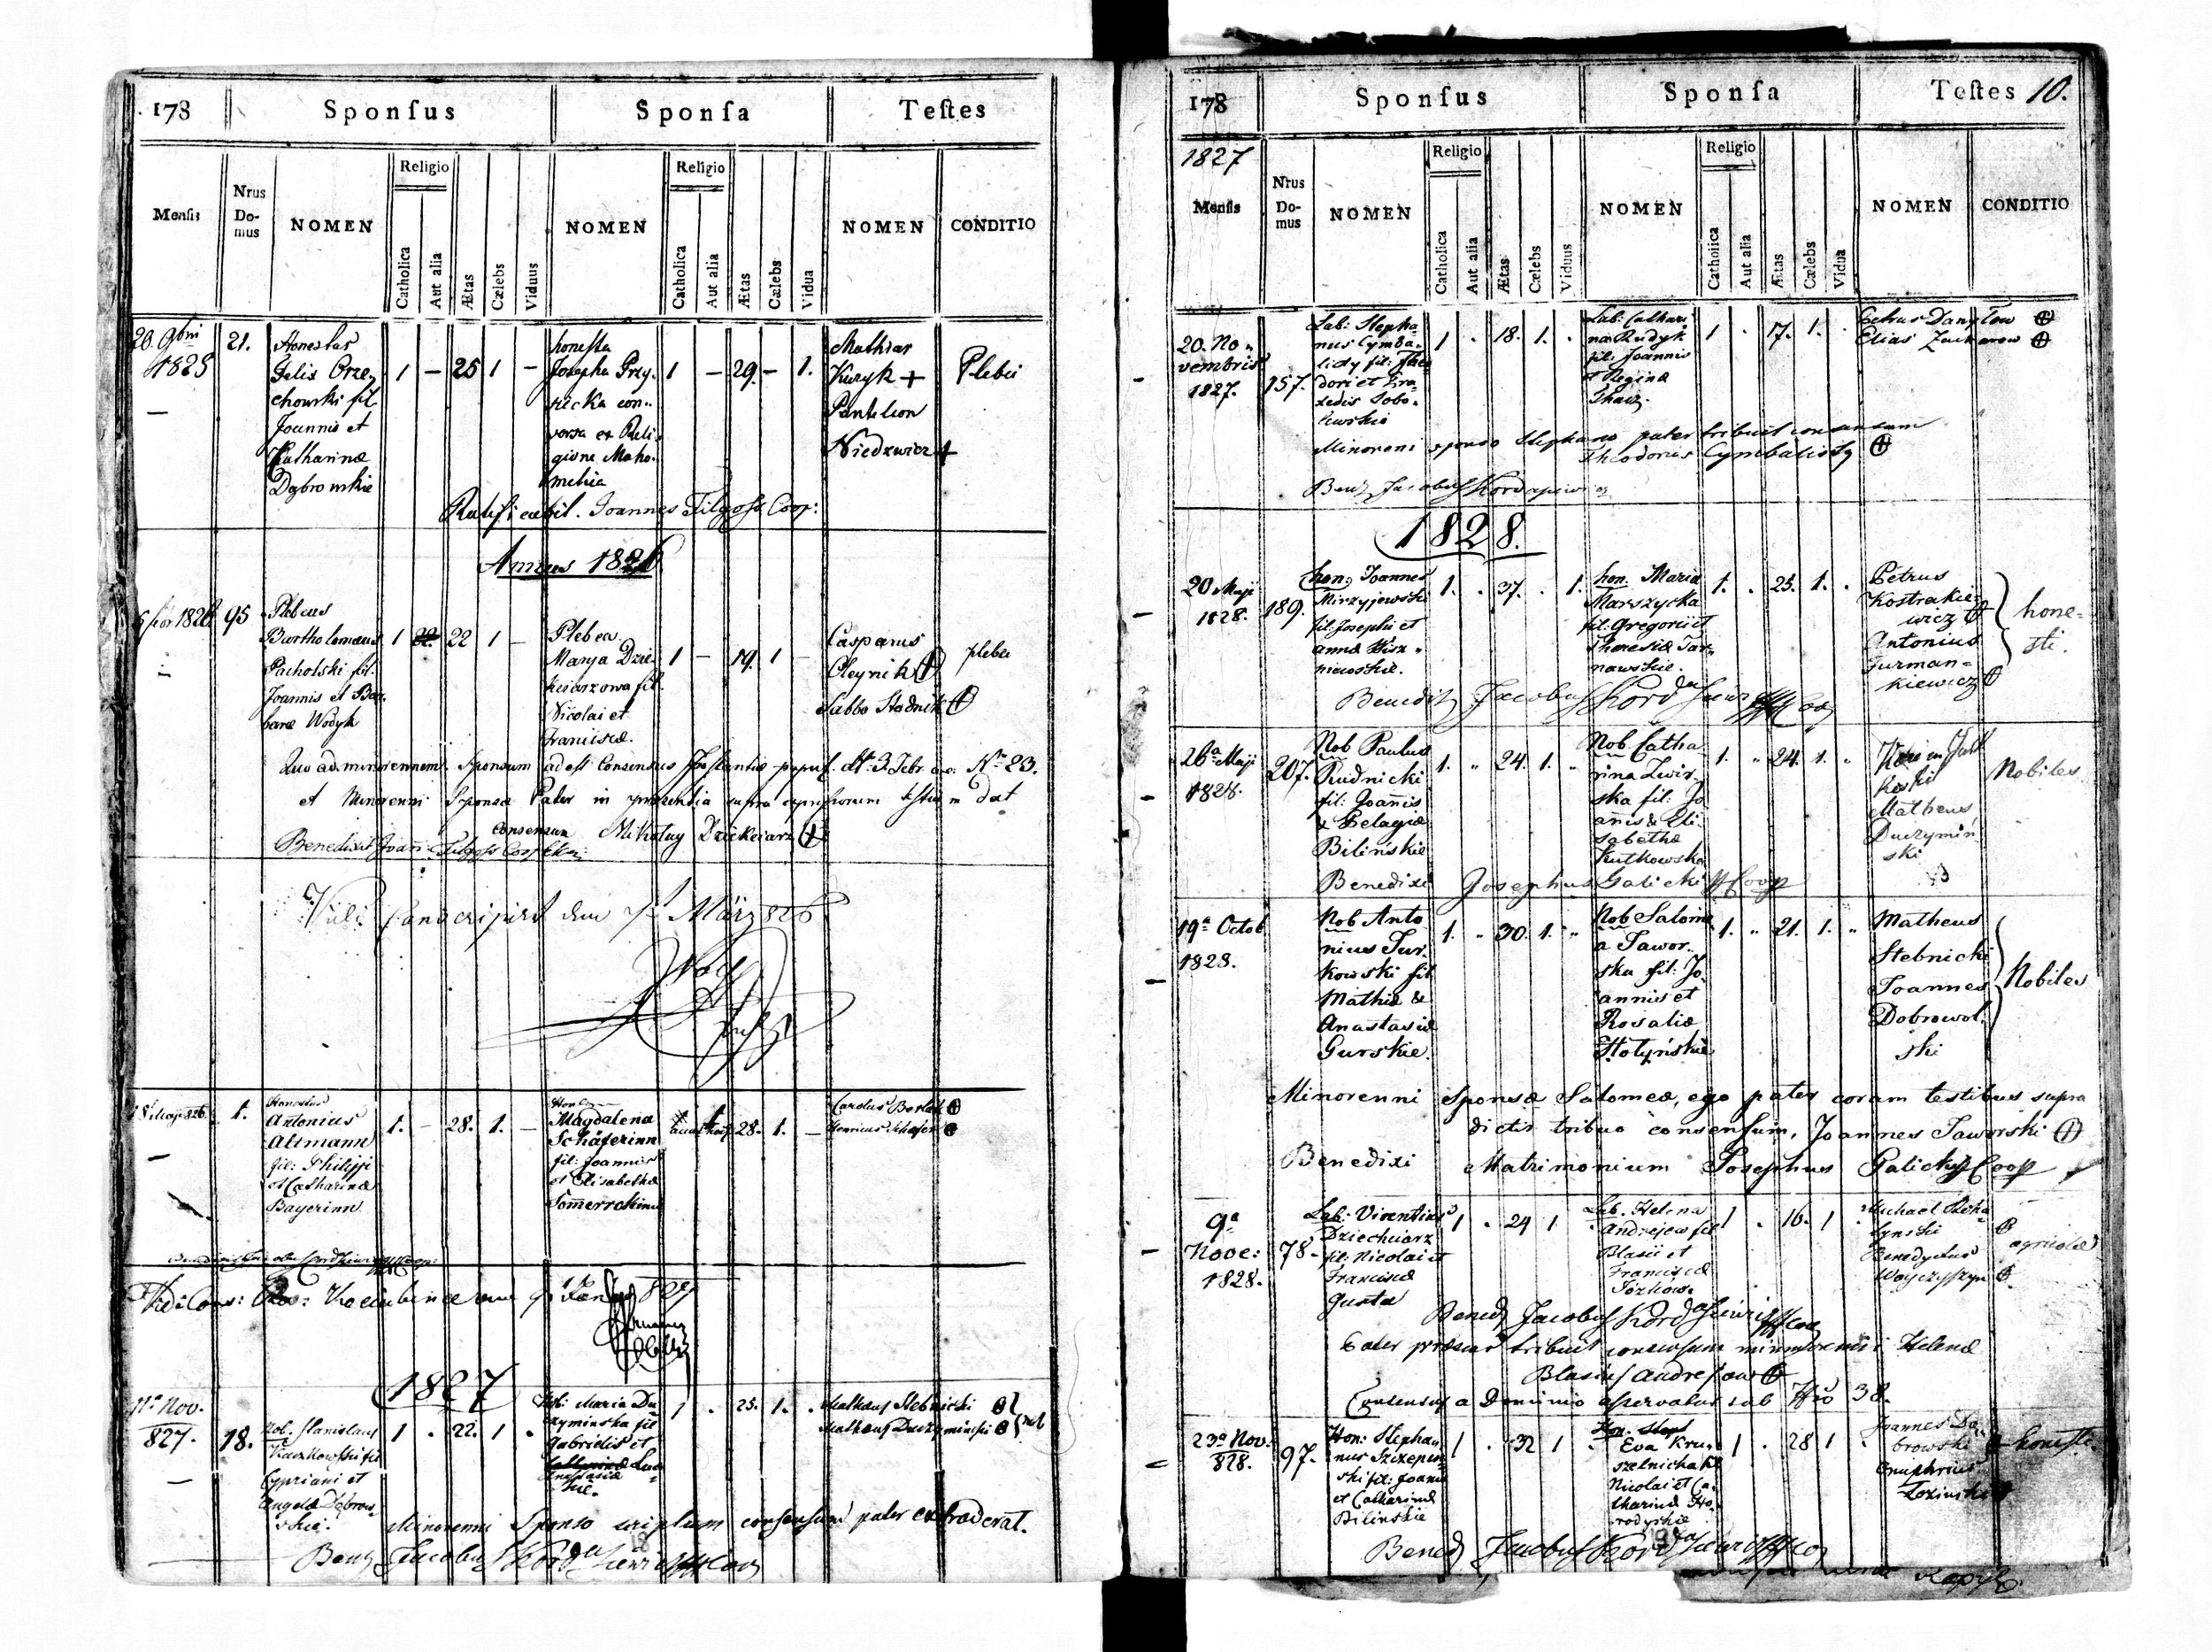 178
Sponſus
Sponſa
Teſtes
Menſis
Nrus
Do-
mus
NOMEN
Religio
Catholica
Aut alia
Ætas
Cælebs
Viduus
NOMEN
Religio
Catholica
Aut alia
Ætas
Cælebs
Vidua
NOMEN
CONDITIO
20. 9bri
1825
21.
Honestus
Felix Orze-
chowski fil.
Joannis et
Katharinæ
Dąbrowskie
1 — 25 1 —
honesta
Josepha Przy-
con-
versa ex Reli-
gione Maho-
1 — 29. — 1.
Mathias
Kuzyk +
Panteleon
Niedzwiez +
Plebei
Joannes Filgoss Coop:
Annus 1826
1826 95
Plebeus
Bartholomæus
Pacholski fil.
Joannis et Bar-
baræ Wodyk
1 22. 22 1 —
Plebea
Marya Dzie-
kciarzowa fil.
Nicolai et
Franciscæ.
1 — 19. 1 —
Casparus
Oleynik
Sabbo Stadnik
plebei
Quo ad minorennem Sponsum adest Consensus No 23.
et Minorenni Sponsæ Pater in præsentia supra testium dat
consensum Mikołay Dziekciarz
Benedixit Joan: Filgoss Coop
März 826
18 Maji 826.
1.
Honestus
Antonius
Altmann
fil: Philippi
et Catharinæ
Bayerinn
1. — 28. 1. —
Magdalena
Schäferinn
fil: Joannis
et Elisabethæ
28. 1. —
Carolus
Henricus Schäfer
827
1827
11a Nov.
827.
18.
Nob. Stanislaus
Kaczkowski fil
Cypriani et
Angelæ Dąbrow-
skie.
1 . 22. 1 .
Nob: Maria Du-
czyminska fil
Gabrielis et
1 . 25. 1. .
Mathæus Stebnicki
Mathæus Duczyminski
nob
Minorenni Sponso scriptum consensum pater extraderat.
Bened Jacobus Kordasiewicz Coop
178
Sponſus
Sponſa
Teſtes 10.
1827
Menſis
Nrus
Do-
mus
NOMEN
Religio
Catholica
Aut alia
Ætas
Cælebs
Viduus
NOMEN
Religio
Catholica
Aut alia
Ætas
Cælebs
Vidua
NOMEN
CONDITIO
20. No-
vembris
1827.
157.
Lab: Stepha-
nus Cymba-
listy fil: Theo-
dori et Pra-
xedis Sobo-
lewskie
1 . 18. 1. .
Lab: Cathari-
na Rudyk
fil: Joannis
et Reginæ
1 . 17. 1. .
Petrus Danyłow
Elias Zacharow
Minorenni sponso Stephano pater tribuit consensum
Theodorus Cymbalisty
Bened Jacobus Kordasiewicz
1828.
20 Maji
1828.
189.
hon. Joannes
Mirzyjewski
fil: Josephi et
annæ Wisz-
niewskie.
1. . 37. . 1.
hon. Maria
Marszycka
fil: Gregorii et
Theresiæ Tar-
nawskie.
1. . 25. 1. .
Petrus
Kostrakie-
wicz
Antonius
Gurman-
kiewicz
hone-
sti.
Benedix Jacobus Kordasiewicz Coop
26a Maji
1828.
207.
Nob Paulus
Rudnicki
fil: Joanis
& Pelagiæ
Bilińskie
1. " 24. 1. "
Nob Catha-
rina Zwir-
ska fil: Jo-
anis & Eli-
sabethæ
Kutkowska
1. " 24. 1. "
Matheus
Duczymiń-
ski
Nobiles
Benedixi Josephus Galicki Coop
19a Octob.
1828.
Nob Anto-
nius Tur-
kowski fil
Mathiæ &
Anastasiæ
Gurskie.
1. " 30. 1. "
Nob Salome-
a Jawor-
ska fil: Jo-
annis et
Rosaliæ
Hołyńskie
1. " 21. 1. "
Matheus
Stebnicki
Joannes
Dobrowol-
ski
Nobiles
Minorenni Sponsæ Salomeæ, ego pater coram testibus supra
dictis tribuo consensum, Joannes Jaworski
Benedixi Matrimonium Josephus Galicki Coop
9a
Nove:
1828.
78.
Lab: Vincentius
Dziechciarz
fil: Nicolai et
Franciscæ
Gusta
1 . 24 1
Lab. Helena
Andrejow fil
Blasii et
Franciscæ
1 . 16. 1 .
Michael
Benedyctus
Woyczyszyn
agricolæ
Bened Jacobus Kordasiewicz Coop
Pater præsens tribuit consensum minorenni Helenæ
Blasius Andrejow
Consensus a Dominio asservatus sub Nro 38.
23a Nov.
828.
97.
Hon: Stepha-
nus Szczepan-
ski fil: Joanis
et Catharinæ
Bilinskie
1 . 32 1
Hon.
Eva Kru-
szelnicka fil
Nicolai et Ca-
tharinæ Ho-
rodyskie
1 . 28 1 .
Joannes Da-
browski
Onuphrius
Łozinski
honesti.
Bened Jacobus Kordasiewicz Coop